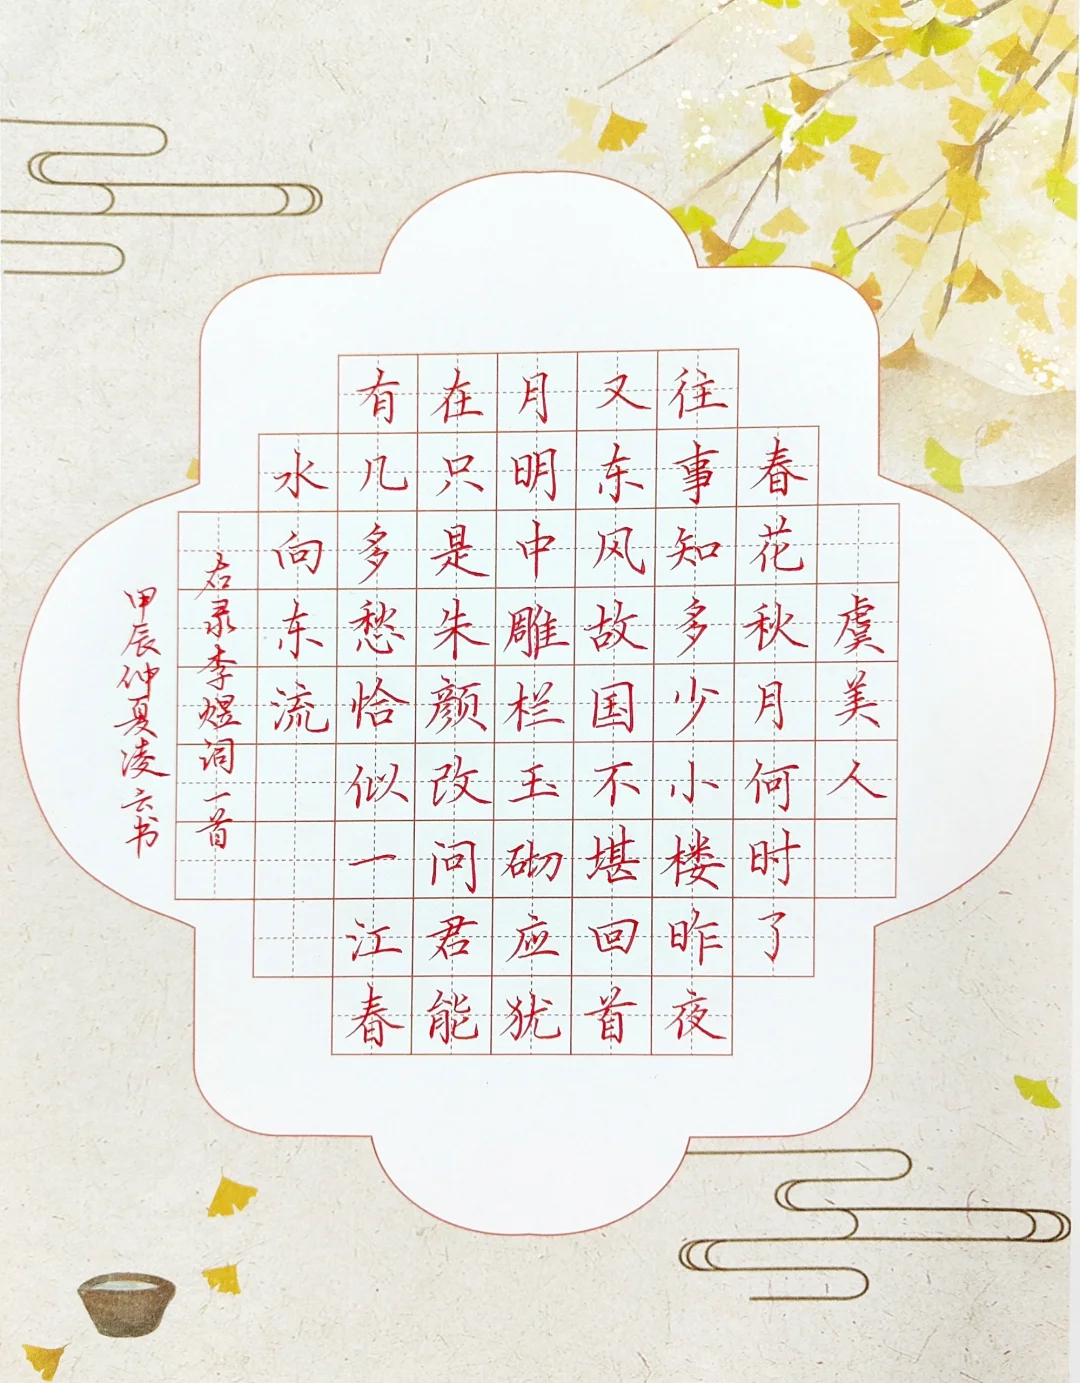 虞美人
春花秋月何时了
往事知多少小楼昨夜
又东风故国不堪回首
月明中雕栏玉砌应犹
在只是朱颜改问君能
有几多愁恰似一江春
水向东流
右录李煜词一首
甲辰仲夏凌云书